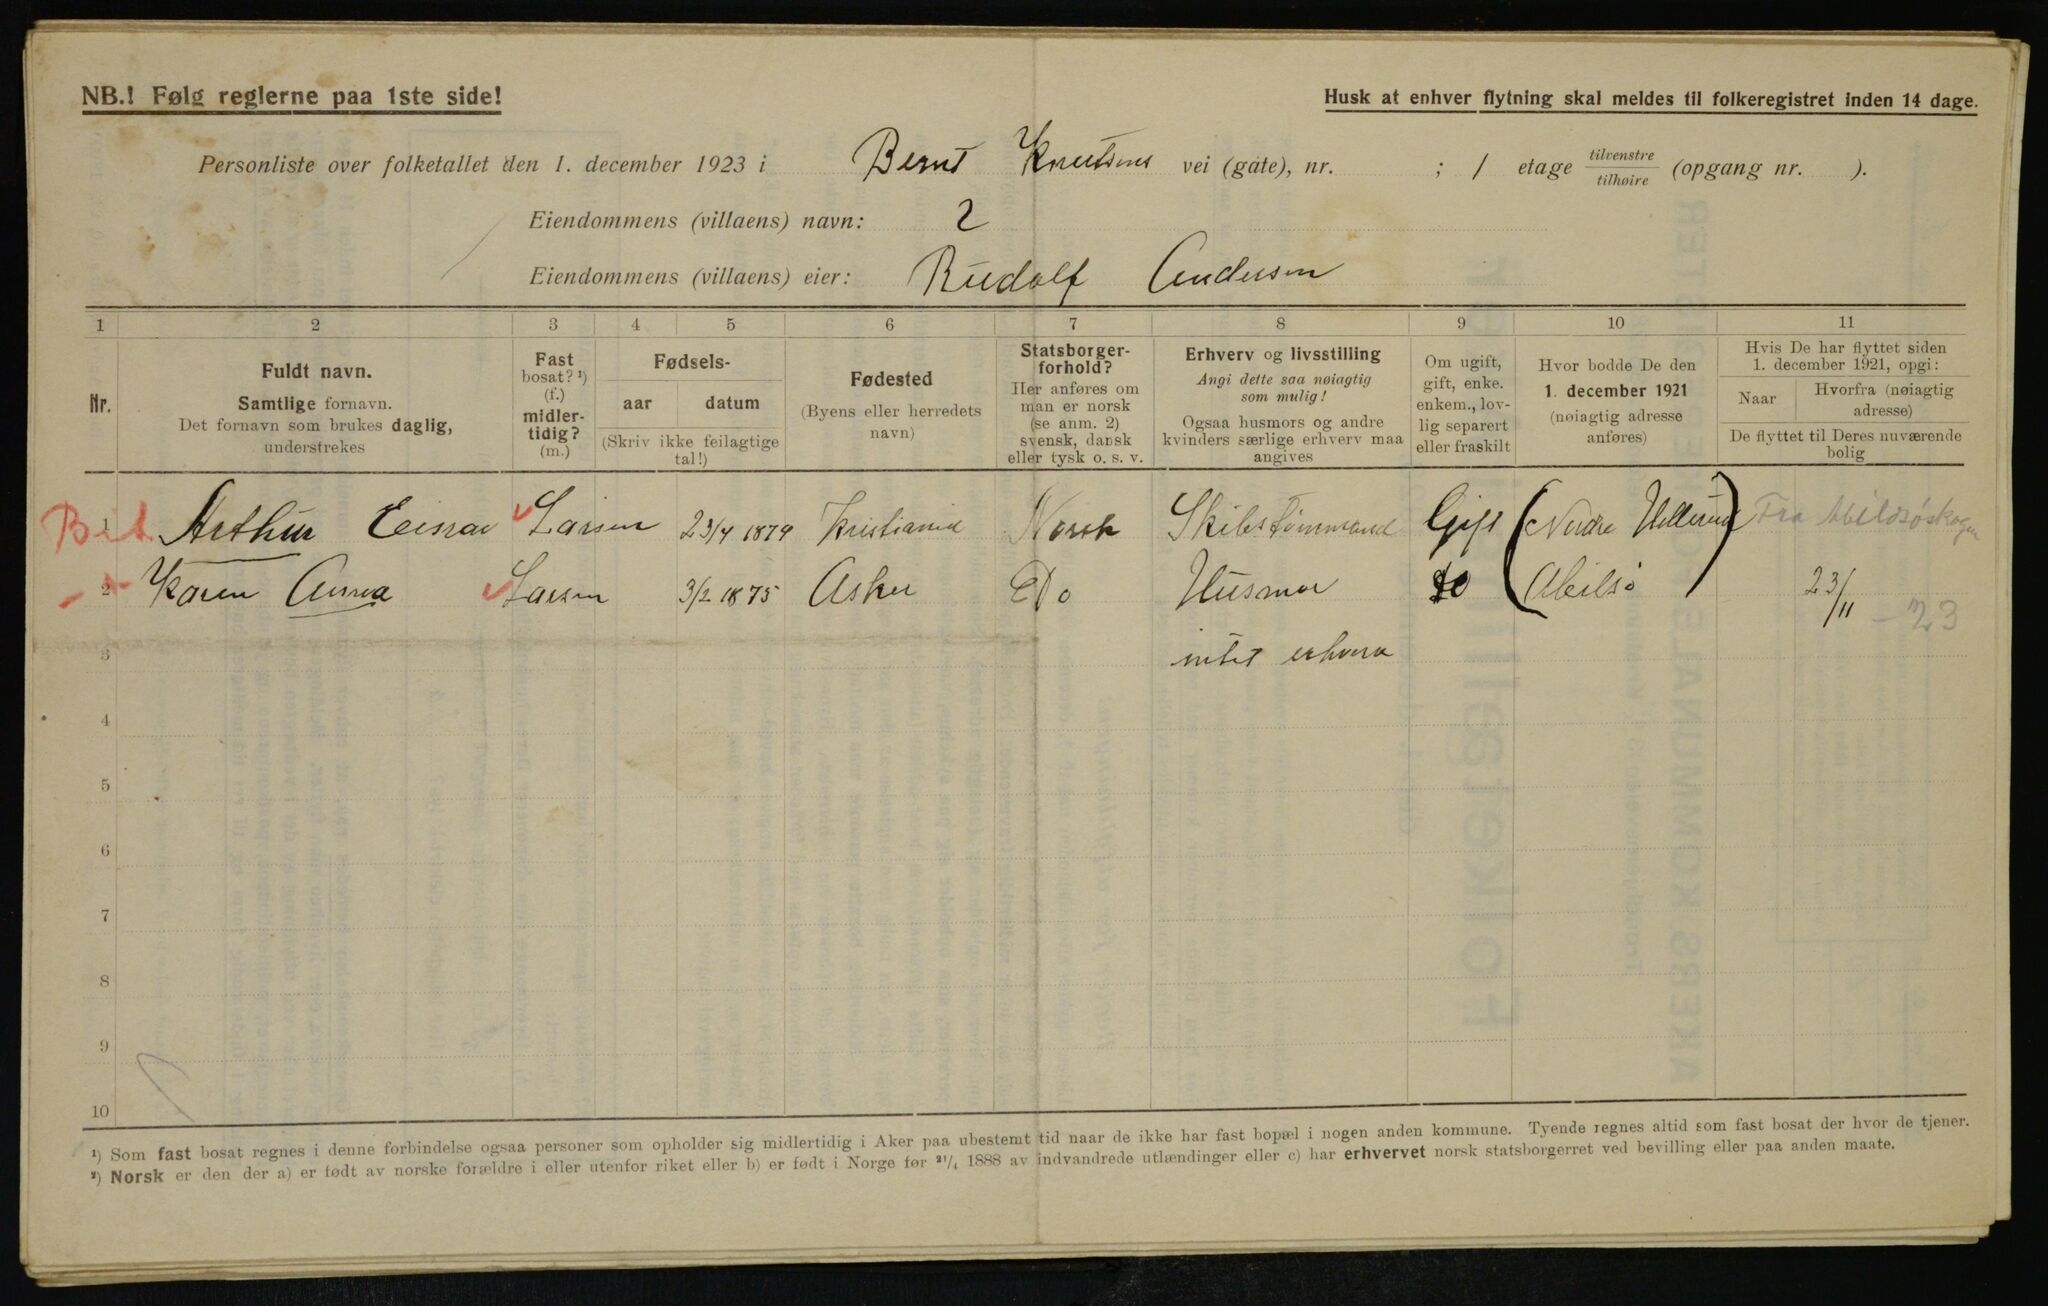 NB.! Følg reglerne paa 1ste side!
Husk at enhver flytning skal meldes til folkeregistret inden 14 dage.
Personliste over folketallet den 1. december 1923 i Bernt Knutsens vei (gate), nr. ; 1 etage tilvenstre / tilhøire (opgang nr. ).
Eiendommens (villaens) navn: 2
Eiendommens (villaens) eier: Rudolf Andersen
1 2 3 4 5 6 7 8 9 10 11
Nr.
Fuldt navn.
Samtlige fornavn.
Det fornavn som brukes daglig,
understrekes
Fast
bosat? ¹)
(f.)
midler-
tidig?
(m.)
Fødsels-
aar datum
(Skriv ikke feilagtige
tal!)
Fødested
(Byens eller herredets
navn)
Statsborger-
forhold?
Her anføres om
man er norsk
(se anm. 2)
svensk, dansk
eller tysk o. s. v.
Erhverv og livsstilling
Angi dette saa nøiagtig
som mulig!
Ogsaa husmors og andre
kvinders særlige erhverv maa
angives
Om ugift,
gift, enke.
enkem., lov-
lig separert
eller fraskilt
Hvor bodde De den
1. december 1921
(nøiagtig adresse
anføres)
Hvis De har flyttet siden
1. december 1921, opgi:
Naar
Hvorfra (nøiagtig
adresse)
De flyttet til Deres nuværende
bolig
1 Arthur Larsen 23/4 1879 Kristiania Norsk Skibstømmand Gift (Nedre Hellerud) Fra Abildsøskogen
2 Karen Anna Larsen 3/2 1875 Asker Do Husmor do Abilsø 23/11 - 23
3 intet erhverv
4
5
6
7
8
9
10
¹) Som fast bosat regnes i denne forbindelse ogsaa personer som opholder sig midlertidig i Aker paa ubestemt tid naar de ikke har fast bopæl i nogen anden kommune. Tyende regnes altid som fast bosat der hvor de tjener.
²) Norsk er den der a) er født av norske forældre i eller utenfor riket eller b) er født i Norge før ²¹/₄ 1888 av indvandrede utlændinger eller c) har erhvervet norsk statsborgerret ved bevilling eller paa anden maate.